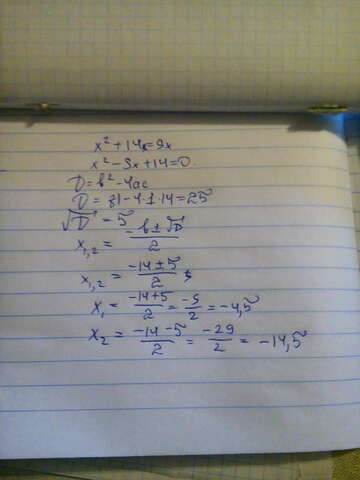 x² + 14 = 9x
x² - 9x + 14 = 0.
D = b² - 4ac
D = 81 - 4·1·14 = 25
√D = 5
x₁,₂ = (-b ± √D)/2
x₁,₂ = (-14 ± 5)/2
x₁ = (-14 + 5)/2 = -9/2 = -4,5
x₂ = (-14 - 5)/2 = -29/2 = -14,5